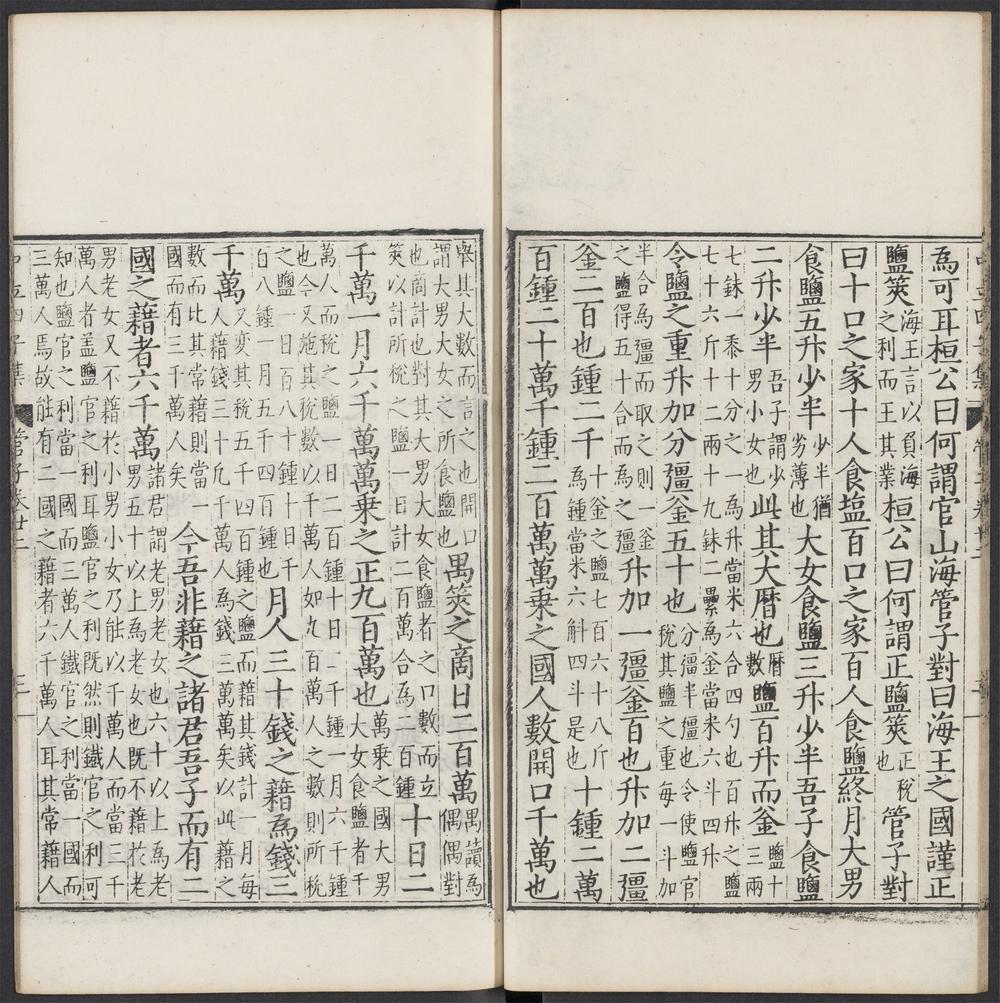 為可耳桓公曰何謂官山海管子對曰海王之國謹正
鹽筴海王言以負海之利而王其業桓公曰何謂正鹽筴正稅也管子對
曰十口之家十人食塩百口之家百人食鹽終月大男
食鹽五升少半少半猶劣薄也大女食鹽三升少半吾子食鹽
二升少半吾子謂少男小女也此其大曆也曆數鹽百升而釜鹽十二兩
七銖一黍十分之一為升當米六合四勺也百升之鹽
七十六斤十二兩十九銖二纍為釜當米六斗四升
令鹽之重升加分彊釜五十也分彊半彊也令使鹽官稅其鹽之重每一斗加
半合為彊而取之則一釜之鹽得五十合而為之彊升加一彊釜百也升加二彊
釜二百也鍾二千十釜之鹽七百六十八斤為鍾當米六斛四斗是也十鍾二萬
百鍾二十萬千鍾二百萬萬乘之國人數開口千萬也
舉其大數而言之也開口謂大男大女之所食鹽也禺筴之商日二百萬禺讀為偶偶對
也商計也對其大男大女食鹽者之口數而立筴以計所稅之鹽一日計二百萬合為二百鍾十日二
千萬一月六千萬萬乘之正九百萬也萬乘之國大男大女食鹽者千
萬人而稅之鹽一日二百鍾十日二千鍾一月六千鍾
也今又施其稅數以千萬人如九百萬人之數則所稅
之鹽一日百八十鍾十日千百八鍾一月五千四百鍾也月人三十錢之藉為錢三
千萬又變其稅五千四百鍾之鹽而藉其錢計一月每人藉錢三十凡千萬人為錢三千萬矣以此藉之
數而比其常藉則當一國而有三千萬人矣今吾非藉之諸君吾子而有二
國之藉者六千萬諸君謂老男老女也六十以上為老男五十以上為老女也既不藉於老
男老女又不藉於小男小女乃能以千萬人而當三千
萬人者盖鹽官之利耳鹽官之利既然則鐵官之利可
知也鹽官之利當一國而三萬人鐵官之利當一國而
三萬人焉故能有二國之藉者六千萬人耳其常藉人